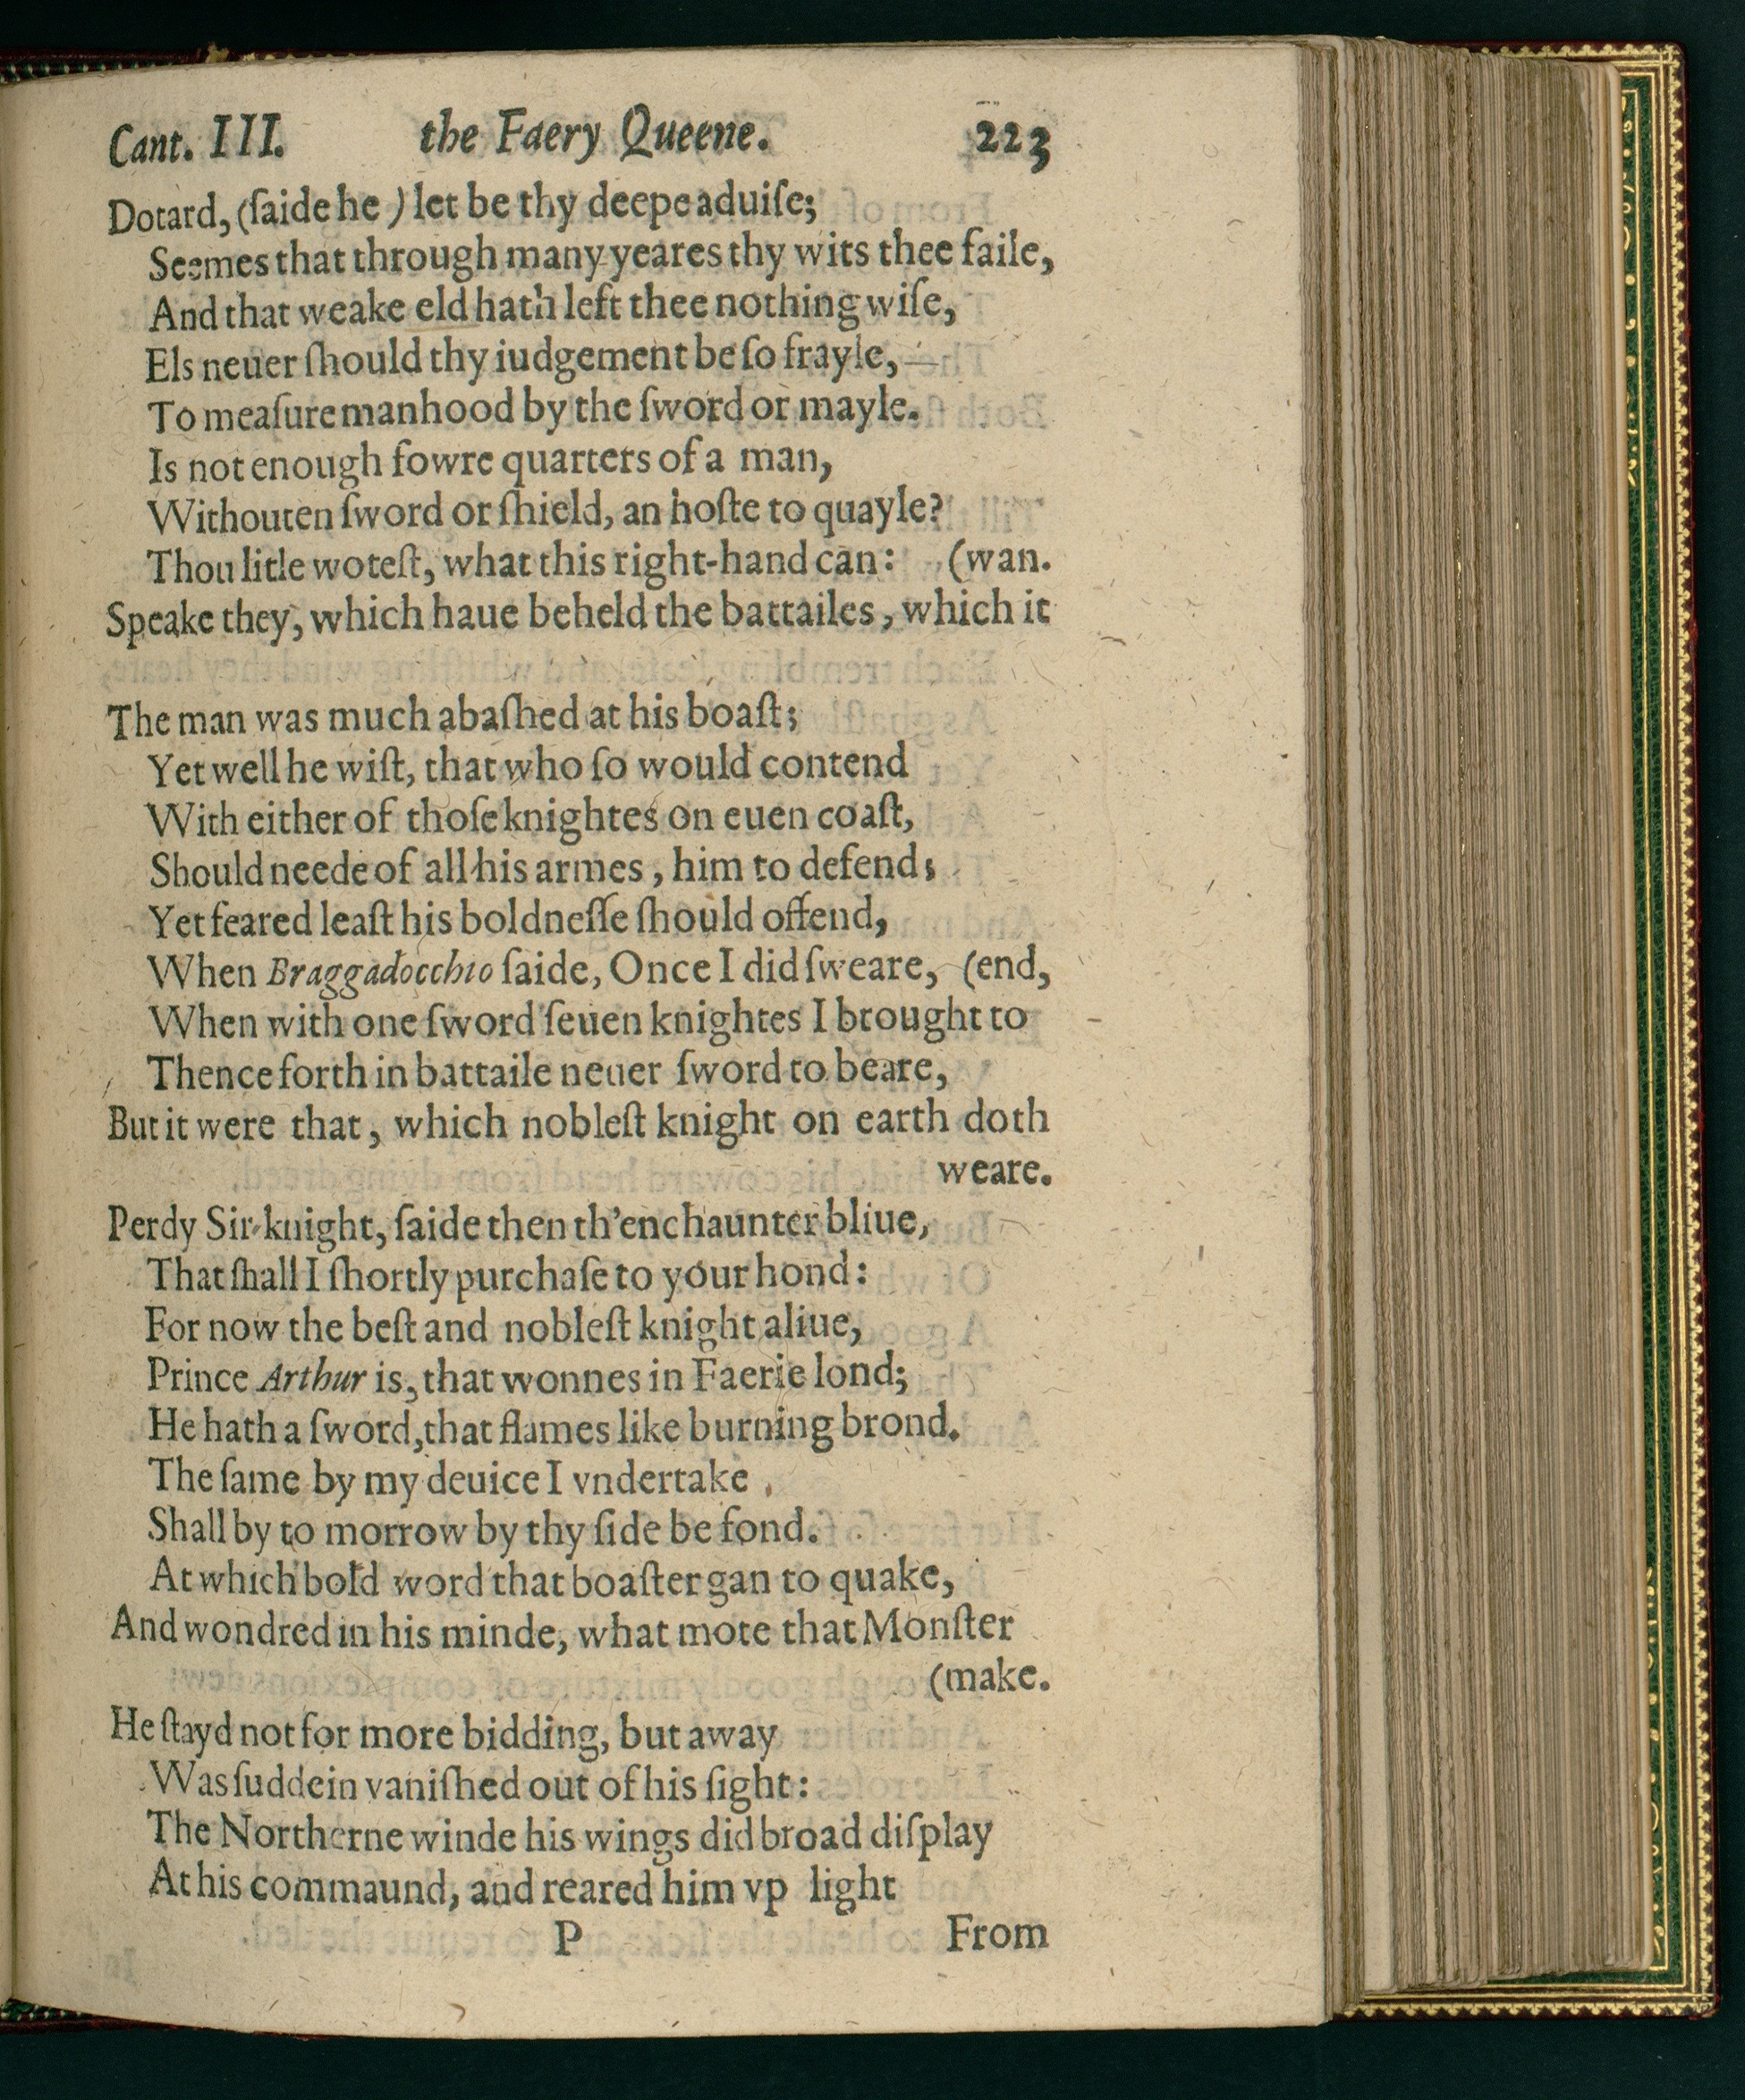 Cant. III. the Faery Queene. 223
Dotard, (ſaide he ) let be thy deepe aduiſe;
Seemes that through many yeares thy wits thee faile,
And that weake eld hath left thee nothing wiſe,
Els neuer ſhould thy iudgement be ſo frayle,
To meaſure manhood by the ſword or mayle.
Is not enough fowre quarters of a man,
Withouten ſword or ſhield, an hoſte to quayle?
Thou litle woteſt, what this right-hand can: (wan.
Speake they, which haue beheld the battailes, which it
The man was much abaſhed at his boaſt;
Yet well he wiſt, that who ſo would contend
With either of thoſe knightes on euen coaſt,
Should neede of all his armes, him to defend;
Yet feared leaſt his boldneſſe ſhould offend,
When Braggadocchio ſaide, Once I did ſweare, (end,
When with one ſword ſeuen knightes I brought to
Thence forth in battaile neuer ſword to beare,
But it were that, which nobleſt knight on earth doth
weare.
Perdy Sir knight, ſaide then th'enchaunter bliue,
That ſhall I ſhortly purchaſe to your hond:
For now the beſt and nobleſt knight aliue,
Prince Arthur is, that wonnes in Faerie lond;
He hath a ſword, that flames like burning brond.
The ſame by my deuice I vndertake
Shall by to morrow by thy ſide be fond.
At which bold word that boaſter gan to quake,
And wondred in his minde, what mote that Monſter
(make.
He ſtayd not for more bidding, but away
Was ſuddein vaniſhed out of his ſight:
The Northerne winde his wings did broad diſplay
At his commaund, and reared him vp light
P From